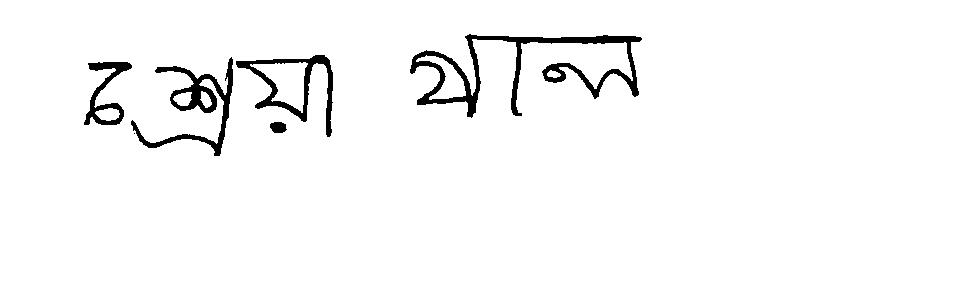 শ্রেয়া খাল